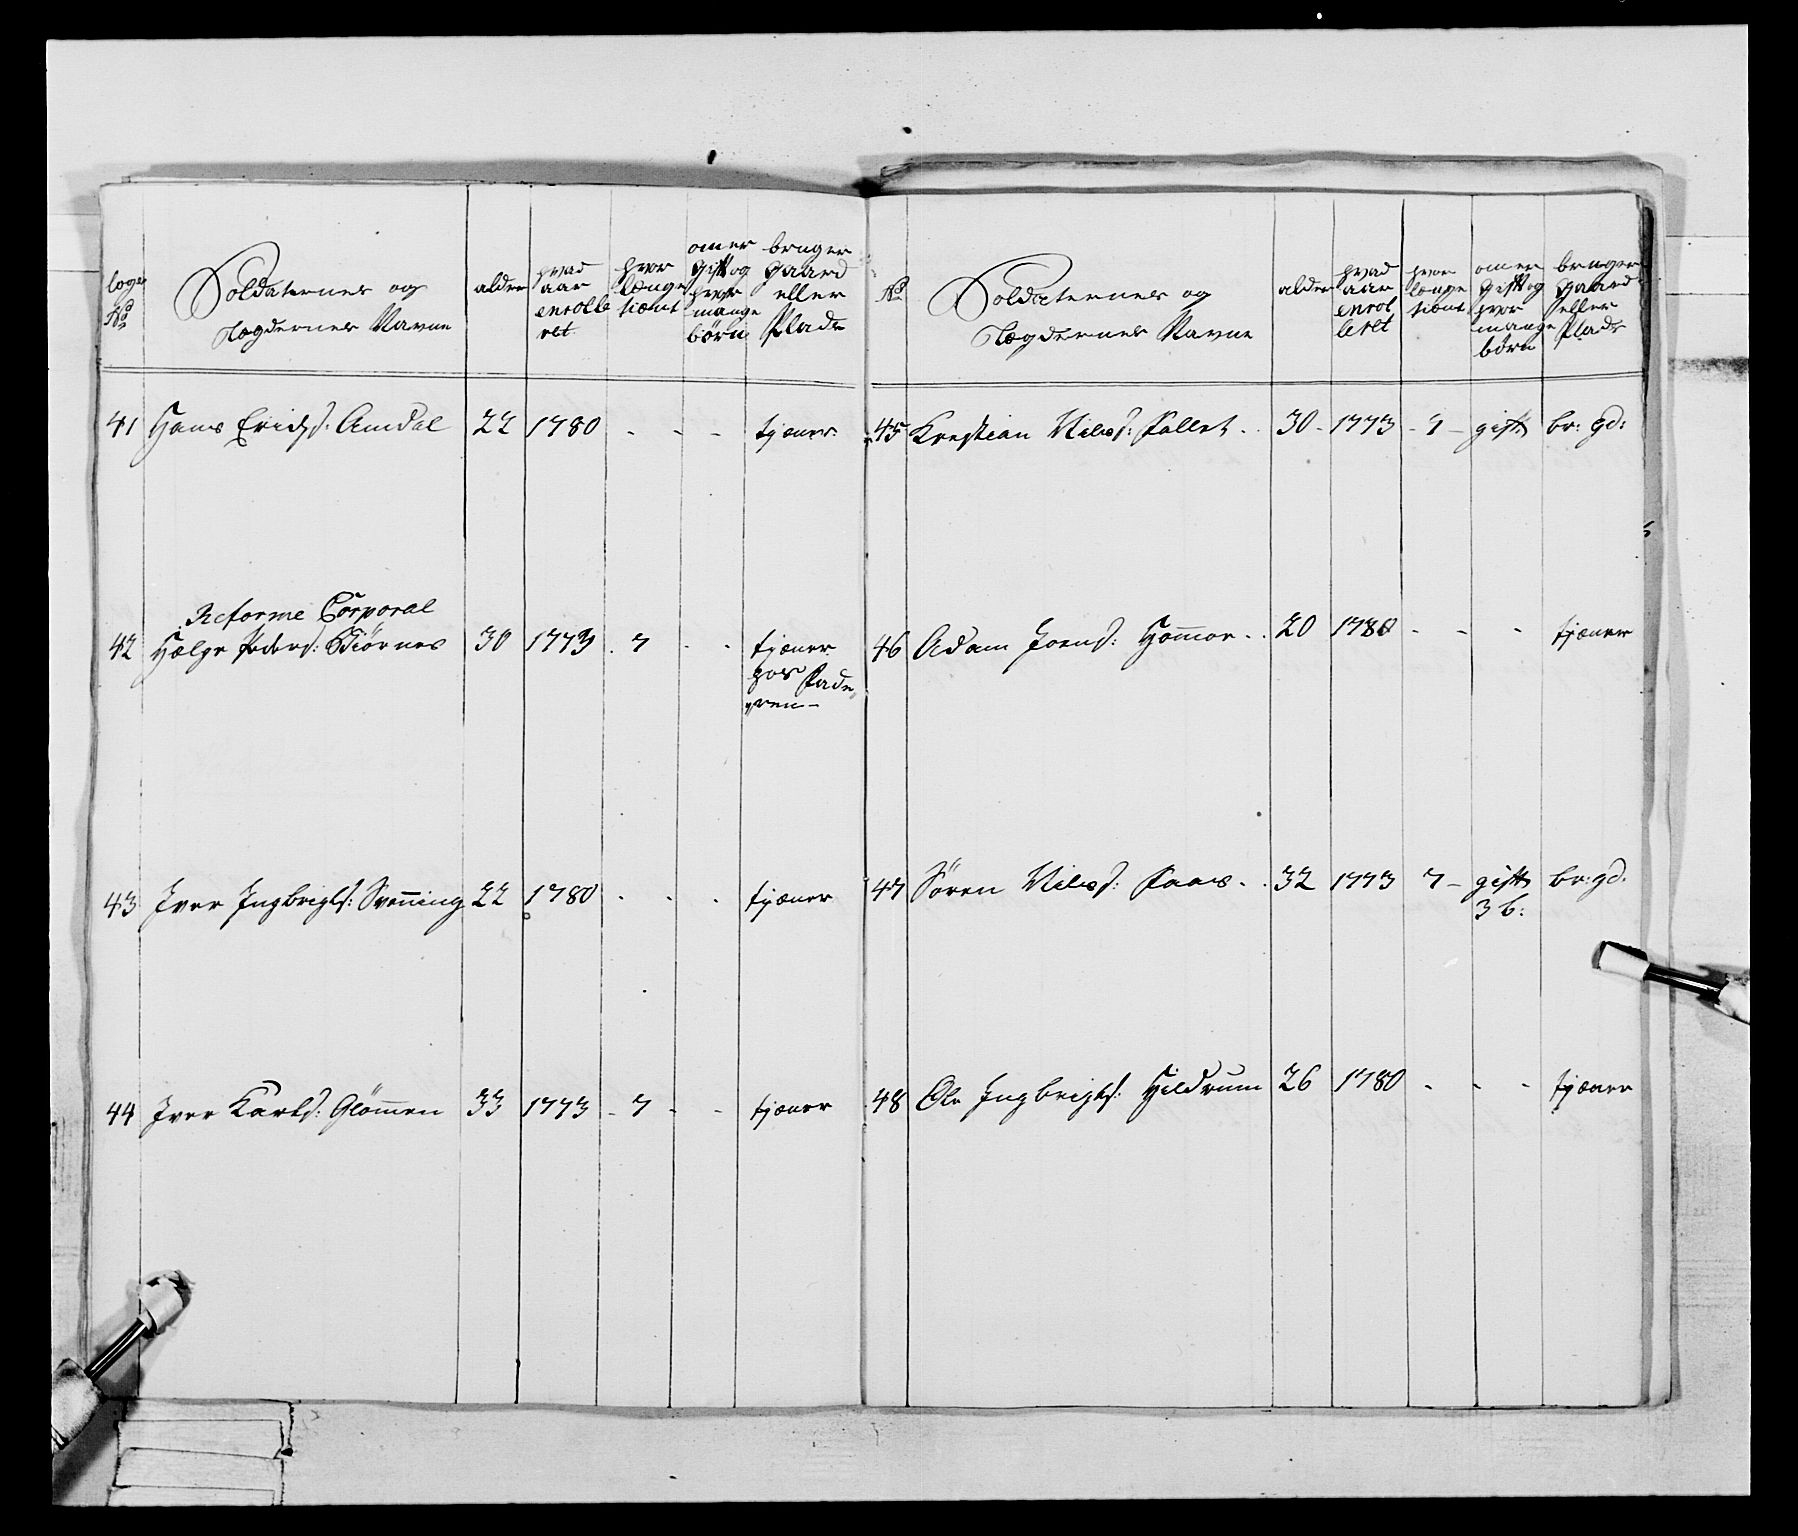 Soldaternes og
Lægdernes Navne
alder
hvad
aar
enrolle
ret
hvor
længe
tient
om er
Gift og
hvor
mange
børn
bruger
Gaard
eller
Plads
41 Hans Erichs: Amdal 22 1780 - - - tjæner
Reforme Corporal
42 Helge Peders: Biørnes 30 1773 . 7 - - tjæner
hos Fade„
„ren -
43 Iver Ingbrigts: Svenning 22 1780 . . . tjæner
44 Iver Karls: Glömmen 33 1773 - 7 - - tjæner
No
Soldaternes og
Lægdernes Navne
alder
hvad
aar
enrol
leret
hvor
længe
tient
om er
Gift og
hvor
mange
børn
bruger
Gaard
eller
Plads
45 Krestian Nilss: Follet . 30 - 1773 - 7 - gift br: gd:
46 Adam Joens: Hommor . . 20 1780 - - - tjæner
47 Sören Nilss: Faas . . 32 1773 7 - gift br: gd.
3 b:
48 Ole Ingbrigts: Hildrum 26 1780 - - - tjæner